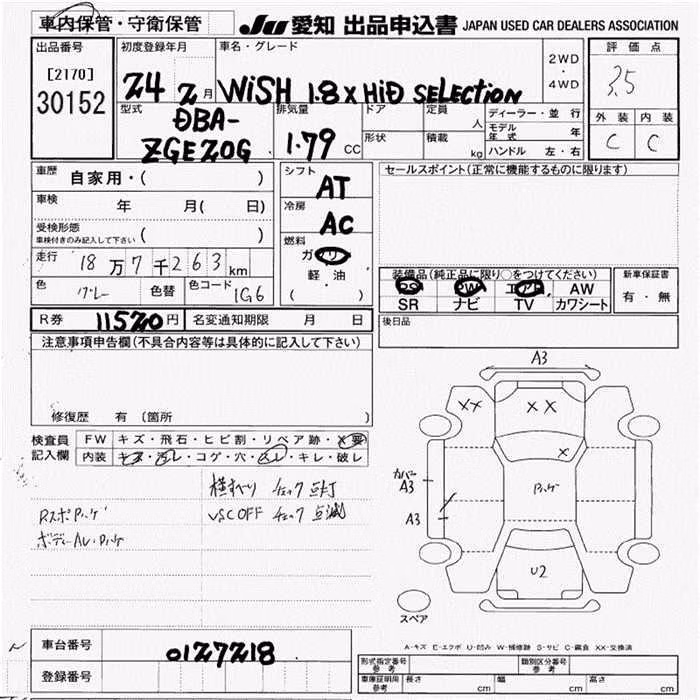 車内保管・守衛保管 JU 愛知 出品申込書 JAPAN USED CAR DEALERS ASSOCIATION
出品番号 初度登録年月 車名・グレード 2WD・4WD 評価点
[2170] 30152 24 2月 WiSH 1.8X HiD SELECTION 3.5
型式 排気量 ドア 定員 人 ディーラー・並行 外装 内装
DBA- 形状 積載 kg モデル年式 年 C C
ZGE20G 1.79 CC ハンドル 左・右
車歴 自家用・( ) シフト AT セールスポイント(正常に機能するものに限ります)
車検 年 月( 日) 冷房 AC
受検形態 ( )
車検付きのみ記入して下さい
燃料 ガソリン
軽・油
( )
走行 18万7千263km
色 グレー 色替 色コード 1G6
装備品(純正品に限り○をつけてください) 新車保証書
PS PW エアB AW 有・無
SR ナビ TV カワシート
R券 11520円 名変通知期限 月 日 後日品
注意事項申告欄(不具合内容等は具体的に記入して下さい)
修復歴 有(箇所 )
検査員記入欄 FW キズ・飛石・ヒビ割・リペア跡・X要
内装 キズ・汚レ・コゲ・穴・スレ・キレ・破レ
横すべり チェック点灯
VSC OFF チェック点滅
A3
XX XX
X
カバー A3
A3
U2
スペア
A-キズ E-エクボ U-凹み W-補修跡 S-サビ C-腐食 XX-交換済
車台番号 0127218
登録番号
形式指定番号 参考 類別区分番号 参考
車庫証明用 参考 長さ cm 幅 cm 高さ cm